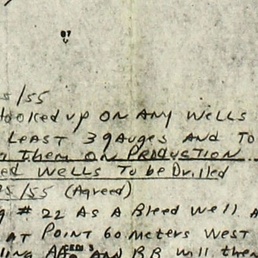 07
5/55
Hooked up ON ANY WELLS
LEAST 3 GAUGES AND TO
THEM ON PRODUCTION
WELLS TO be Drilled
/55 (Agreed)
# 22 AS A Bleed Well A
AT POINT 60 METERS WEST
AND B.B. Will then